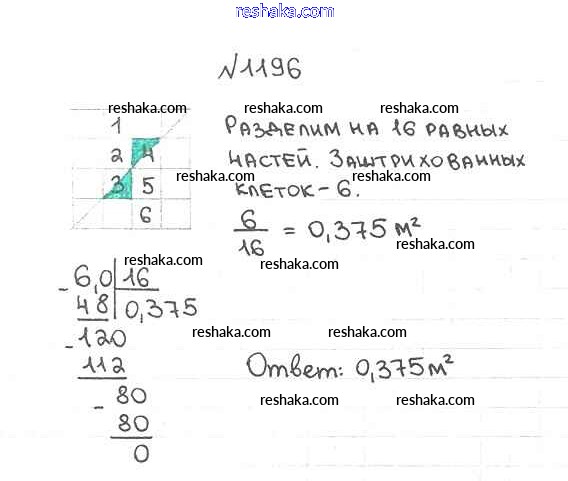 reshaka.com
№1196
reshaka.com reshaka.com reshaka.com
1
2 4
3 5
6
Разделим на 16 равных
частей. Заштрихованных
reshaka.com reshaka.com
клеток - 6.
6/16 = 0,375 м²
reshaka.com
reshaka.com
reshaka.com
- 6,0 | 16
48 | 0,375
- 120
112
- 80
80
0
reshaka.com reshaka.com
Ответ: 0,375 м²
reshaka.com reshaka.com
reshaka.com